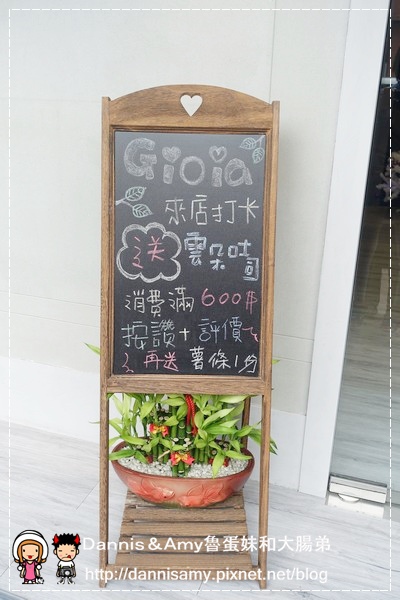 Gioia
來店打卡
送 雲朵吐司
消費滿 600元
按讚+評價
再送 薯條1份
Dannis & Amy魯蛋妹和大腸弟
http://dannisamy.pixnet.net/blog